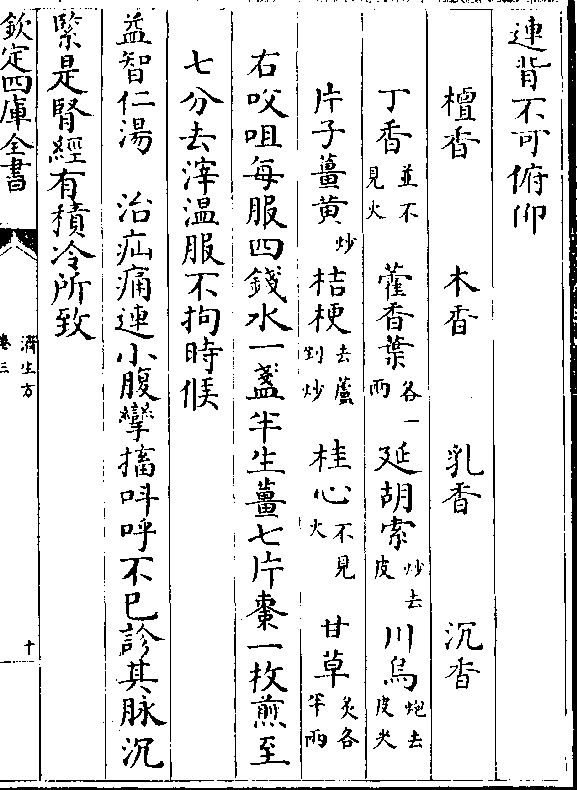 連背不可俯仰
檀香 木香 乳香 沉香
丁香並不見火 藿香葉各一兩 延胡索炒去皮 川烏炮去皮尖
片子薑黄炒 桔梗去蘆剉炒 桂心不見火 甘草炙各半兩
右㕮咀每服四錢水一盞半生薑七片棗一枚煎至
七分去滓温服不拘時候
益智仁湯 治疝痛連小腹攣搐呌呼不已診其脉沉
緊是腎經有積冷所致
欽定四庫全書
濟生方
卷三
十